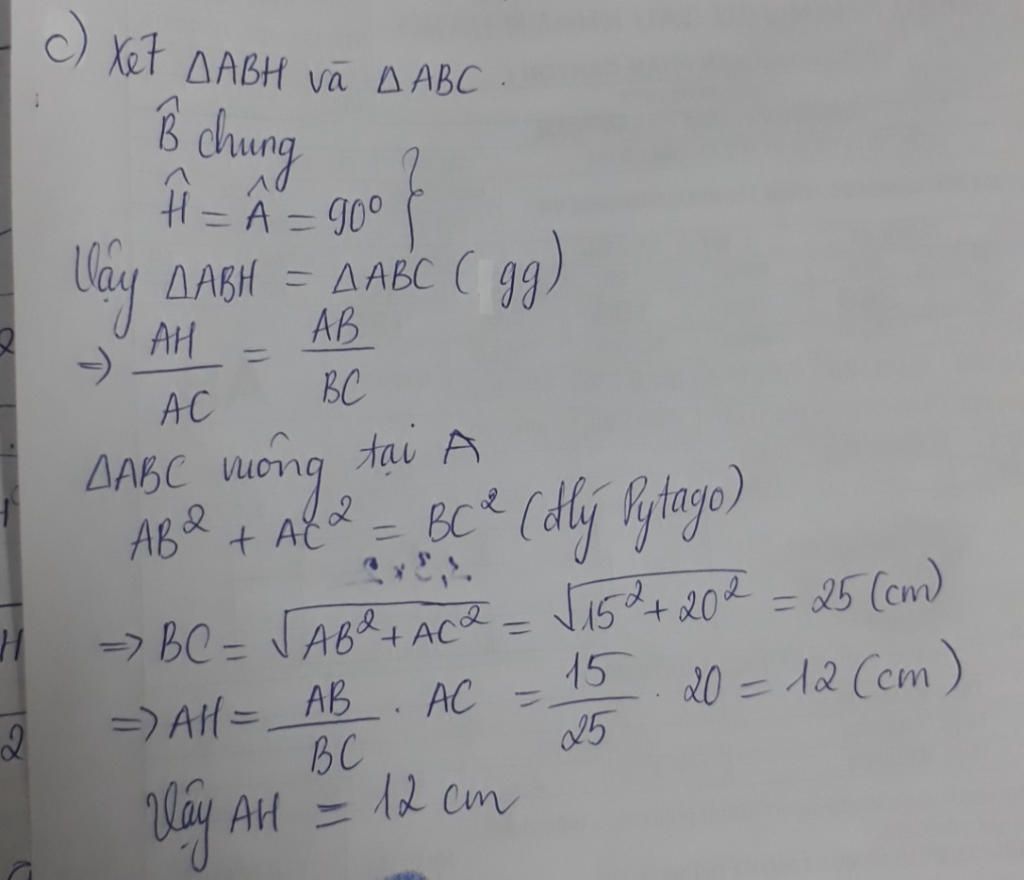 c) Xét ΔABH và ΔABC.
B̂ chung
Ĥ = Â = 90° }
Vậy ΔABH = ΔABC ( gg)
=> AH/AC = AB/BC
ΔABC vuông tại A
AB² + AC² = BC² (đlý Pytago)
=> BC = √(AB² + AC²) = √(15² + 20²) = 25 (cm)
=> AH = AB/BC . AC = 15/25 . 20 = 12 (cm)
Vậy AH = 12 cm